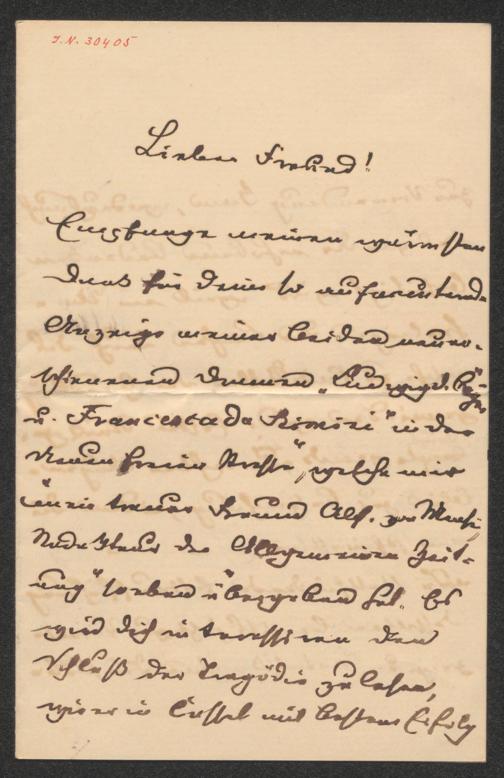 J.N. 30405
Lieber Freund!
Empfange meinen wärmsten
Dank für Deine so aufmunternde
Anzeige meiner beiden neuer-
schienenen Dramen „Ludwig d. Bayer
u. Francesca da Rimini" in der
Neuen freien Presse", welche mir
mein treuer Freund Alf. von
Redakteur der Allgemeinen Zeit-
ung" soeben übergeben hat. Es
wird Dich interessiren den
Schluß der Tragödie zu lesen,
wie er in Cassel mit bestem Erfolg